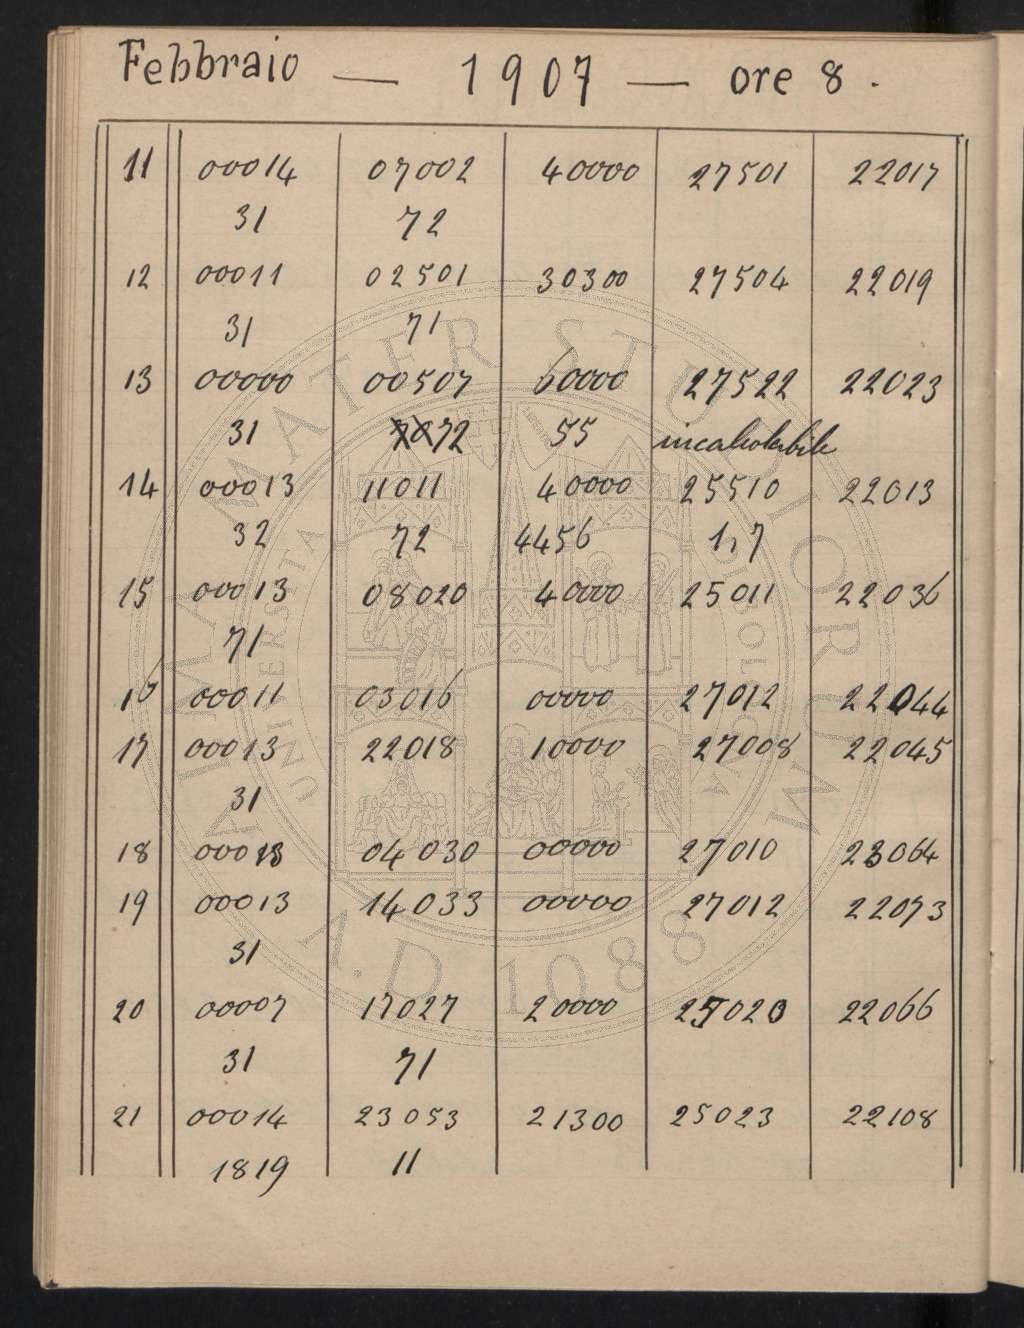 Febbraio — 1907 — ore 8.
11 00014 07002 40000 27501 22017
31 72
12 00011 02501 30300 27504 22019
31 71
13 00000 00507 60000 27522 22023
31 72 55 incalcolabile
14 00013 11011 40000 25510 22013
32 72 4456 1,7
15 00013 08020 40000 25011 22036
71
16 00011 03016 00000 27012 22044
17 00013 22018 10000 27008 22045
31
18 00013 04030 00000 27010 22064
19 00013 14033 00000 27012 22073
31
20 00007 17027 20000 25020 22066
31 71
21 00014 23053 21300 25023 22108
1819 11
ALMA MATER STUDIORUM
UNIVERSITA
A.D. 1088